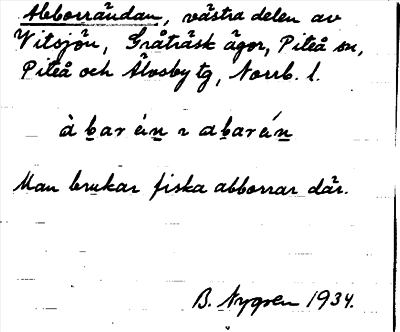 Abborrändan, västra delen av
Vitsjön, Gråträsk ägor, Piteå sn,
Piteå och Älvsby tg, Norrb. l.
Man brukar fiska abborrar där.
B. Nygren 1934.